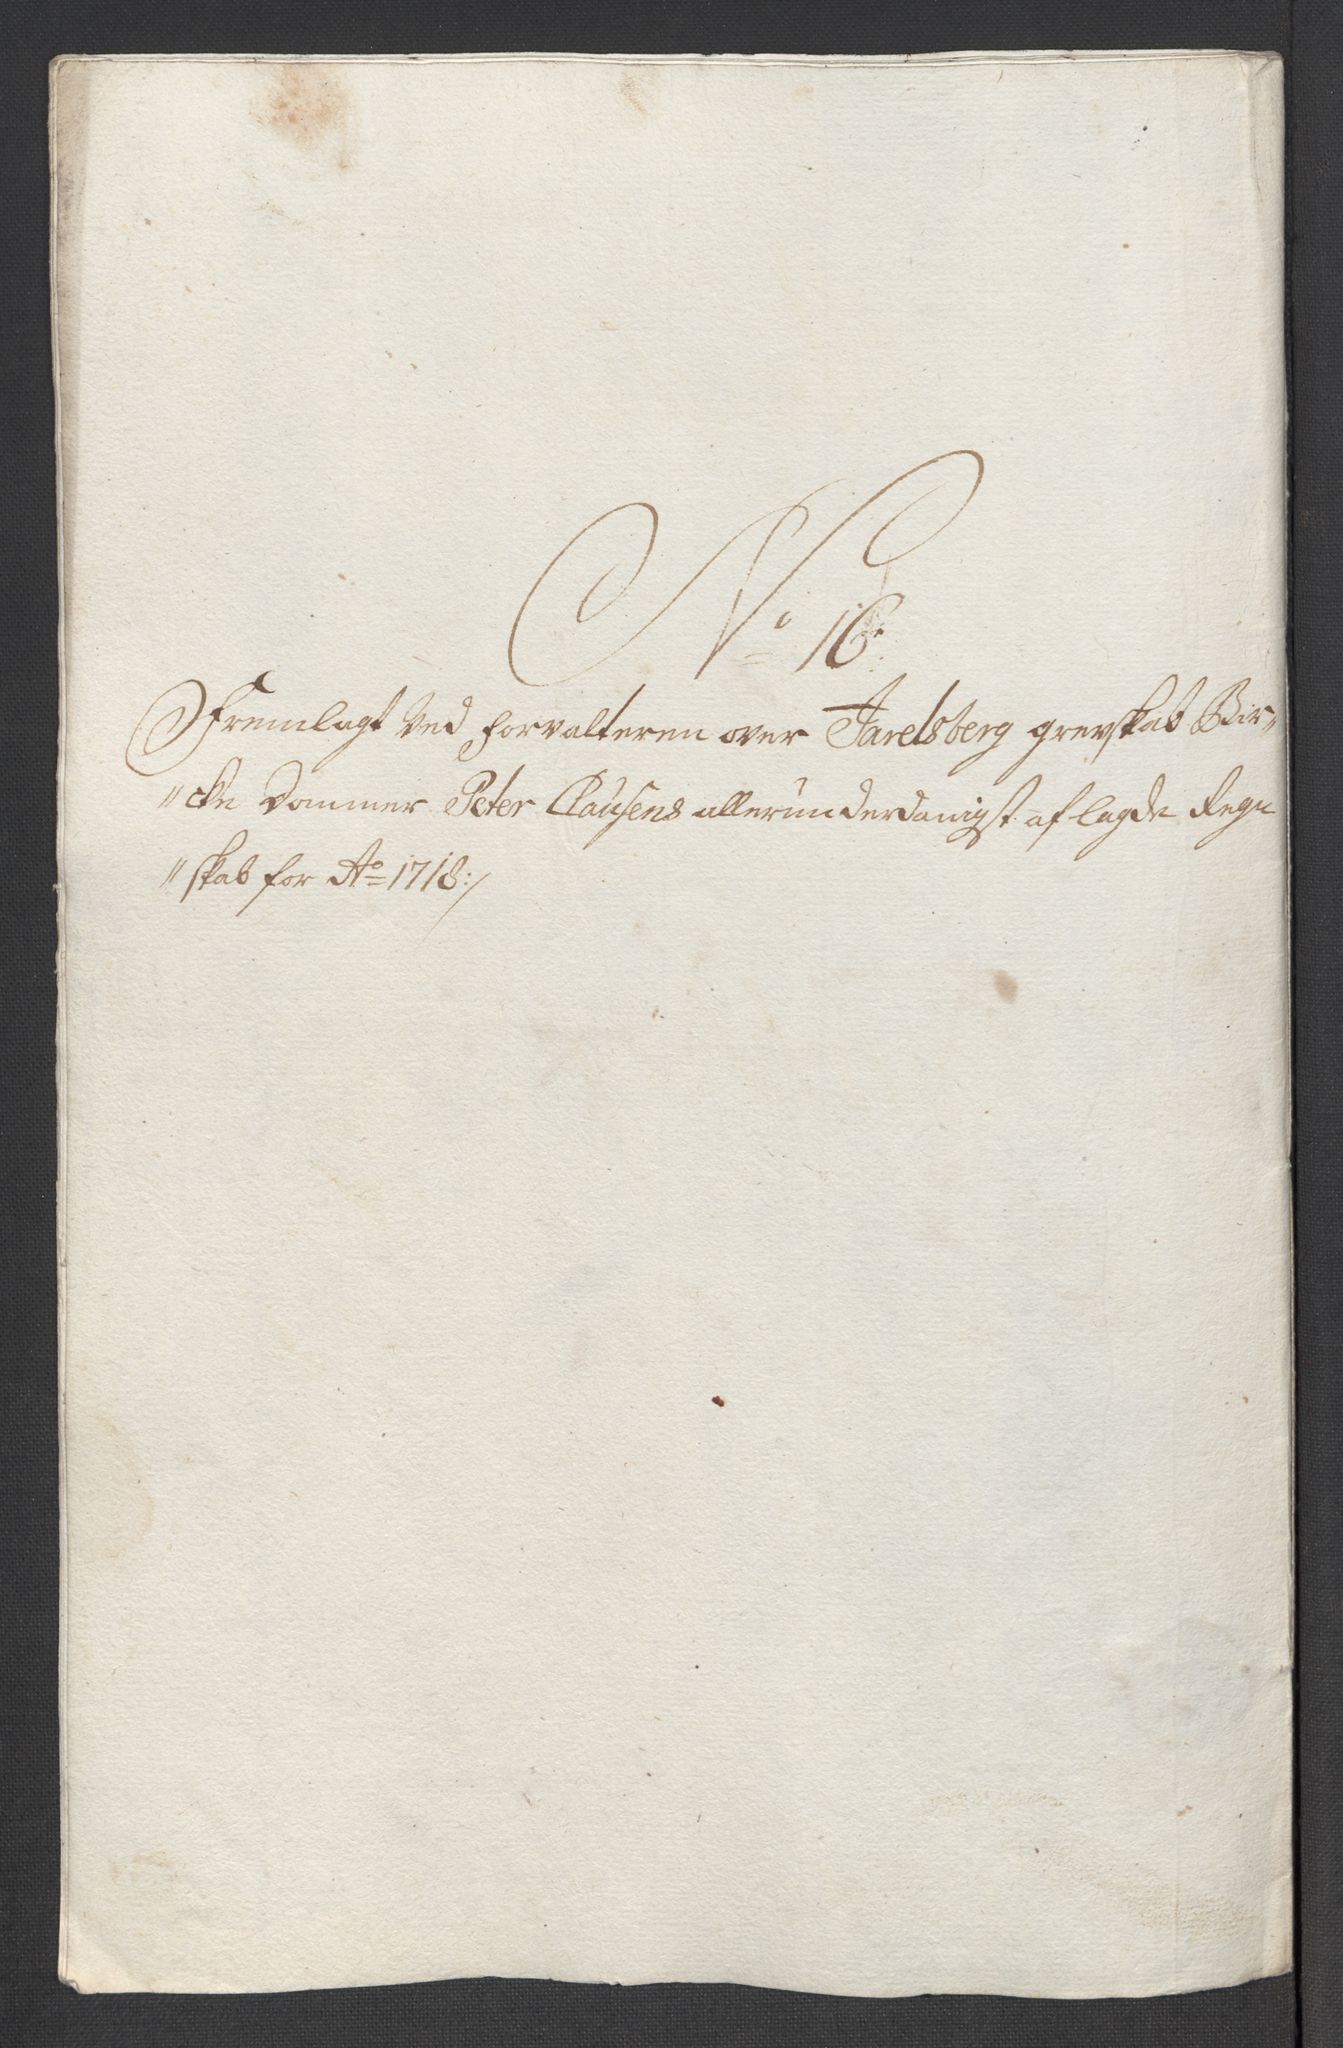 No 16:
Fremlagt Ved Forvalteren over Jarelsberg grevskab Bir„
„cke Dommer Peter Clausens allerunderdanigst aflagde Regn
„skab for Ao 1718:/